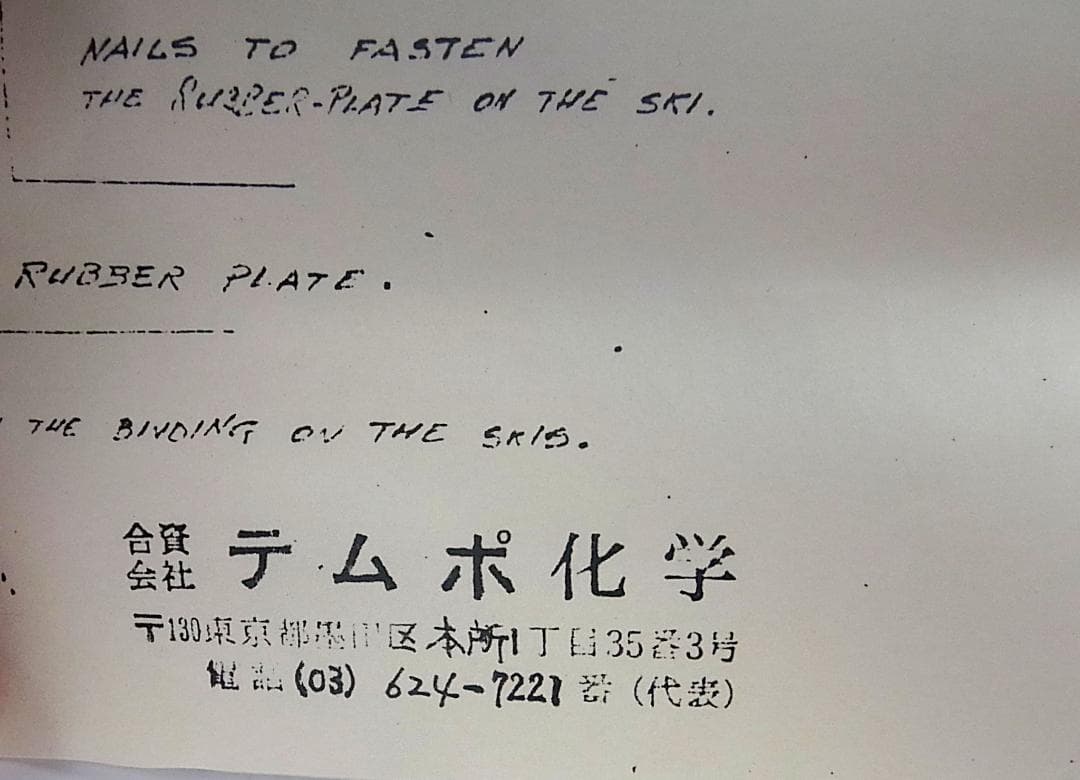 NAILS TO FASTEN
THE RUBBER-PLATE ON THE SKI.
RUBBER PLATE.
THE BINDING ON THE SKIS.
合資会社 テムポ化学
〒130東京都墨田区本所1丁目35番3号
電話(03) 624-7221番(代表)